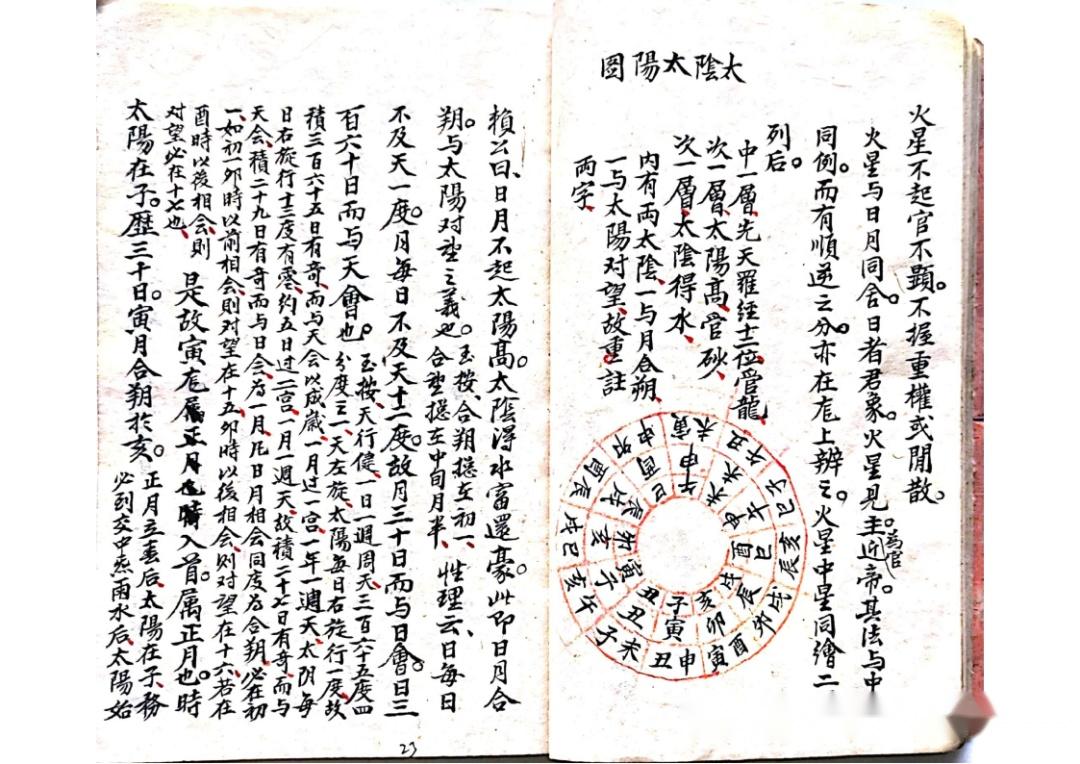 太陰太陽圖
火星不起官不顕。不握重權或閒散。
火星与日月同合。日者君象。火星見主。為官近帝。其法与中
同例。而有順逆之分。亦在庑上辨之。火星中星同繪二
列后。
中一層先天羅經十二位管龍
次一層太陽高官砂
次一層太陰得水
內有両太陰一与月合朔
一与太陽对望故重註
両字
午未申酉戌亥子丑寅卯辰巳
申未午巳辰卯寅丑子亥戌酉
寅未 丑午 子巳 亥辰 戌卯 酉寅 申丑 未子 午亥 巳戌 辰酉 卯申
賴公曰、日月不起太陽高。太陰得水富還豪。此即日月合
朔。与太陽对望之義也。玉按、合朔揔在初一、
合望揔在中旬月半、性理云、日每日
不及天一度。月每日不及天十二度。故月三十日而与日會。日三
百六十日而与天會也。玉按、天行健、一日一週周天、三百六十五度四
分度之一天左旋、太陽每日右旋行一度、故
積三百六十五日有奇、而与天会以成歲、一月过一宮、一年一週天、太阴每
日右旋行十三度有零、約五日过二宮、一月一週天、故積二十七日有奇、而与
天会、積二十九日有奇而与日会、为一月、凡日月相会同度为合朔、必在初
一、如初一卯時以前相会、則对望在十五、卯時以後相会、則对望在十六、若在
酉時以後相会、則
对望必在十七也、是故寅庑屬正月也。時入首。属正月也。時
太陽在子。歷三十日。寅月合朔於亥。正月立春后、太陽在子、務
必到交中炁雨水后、太陽始
23